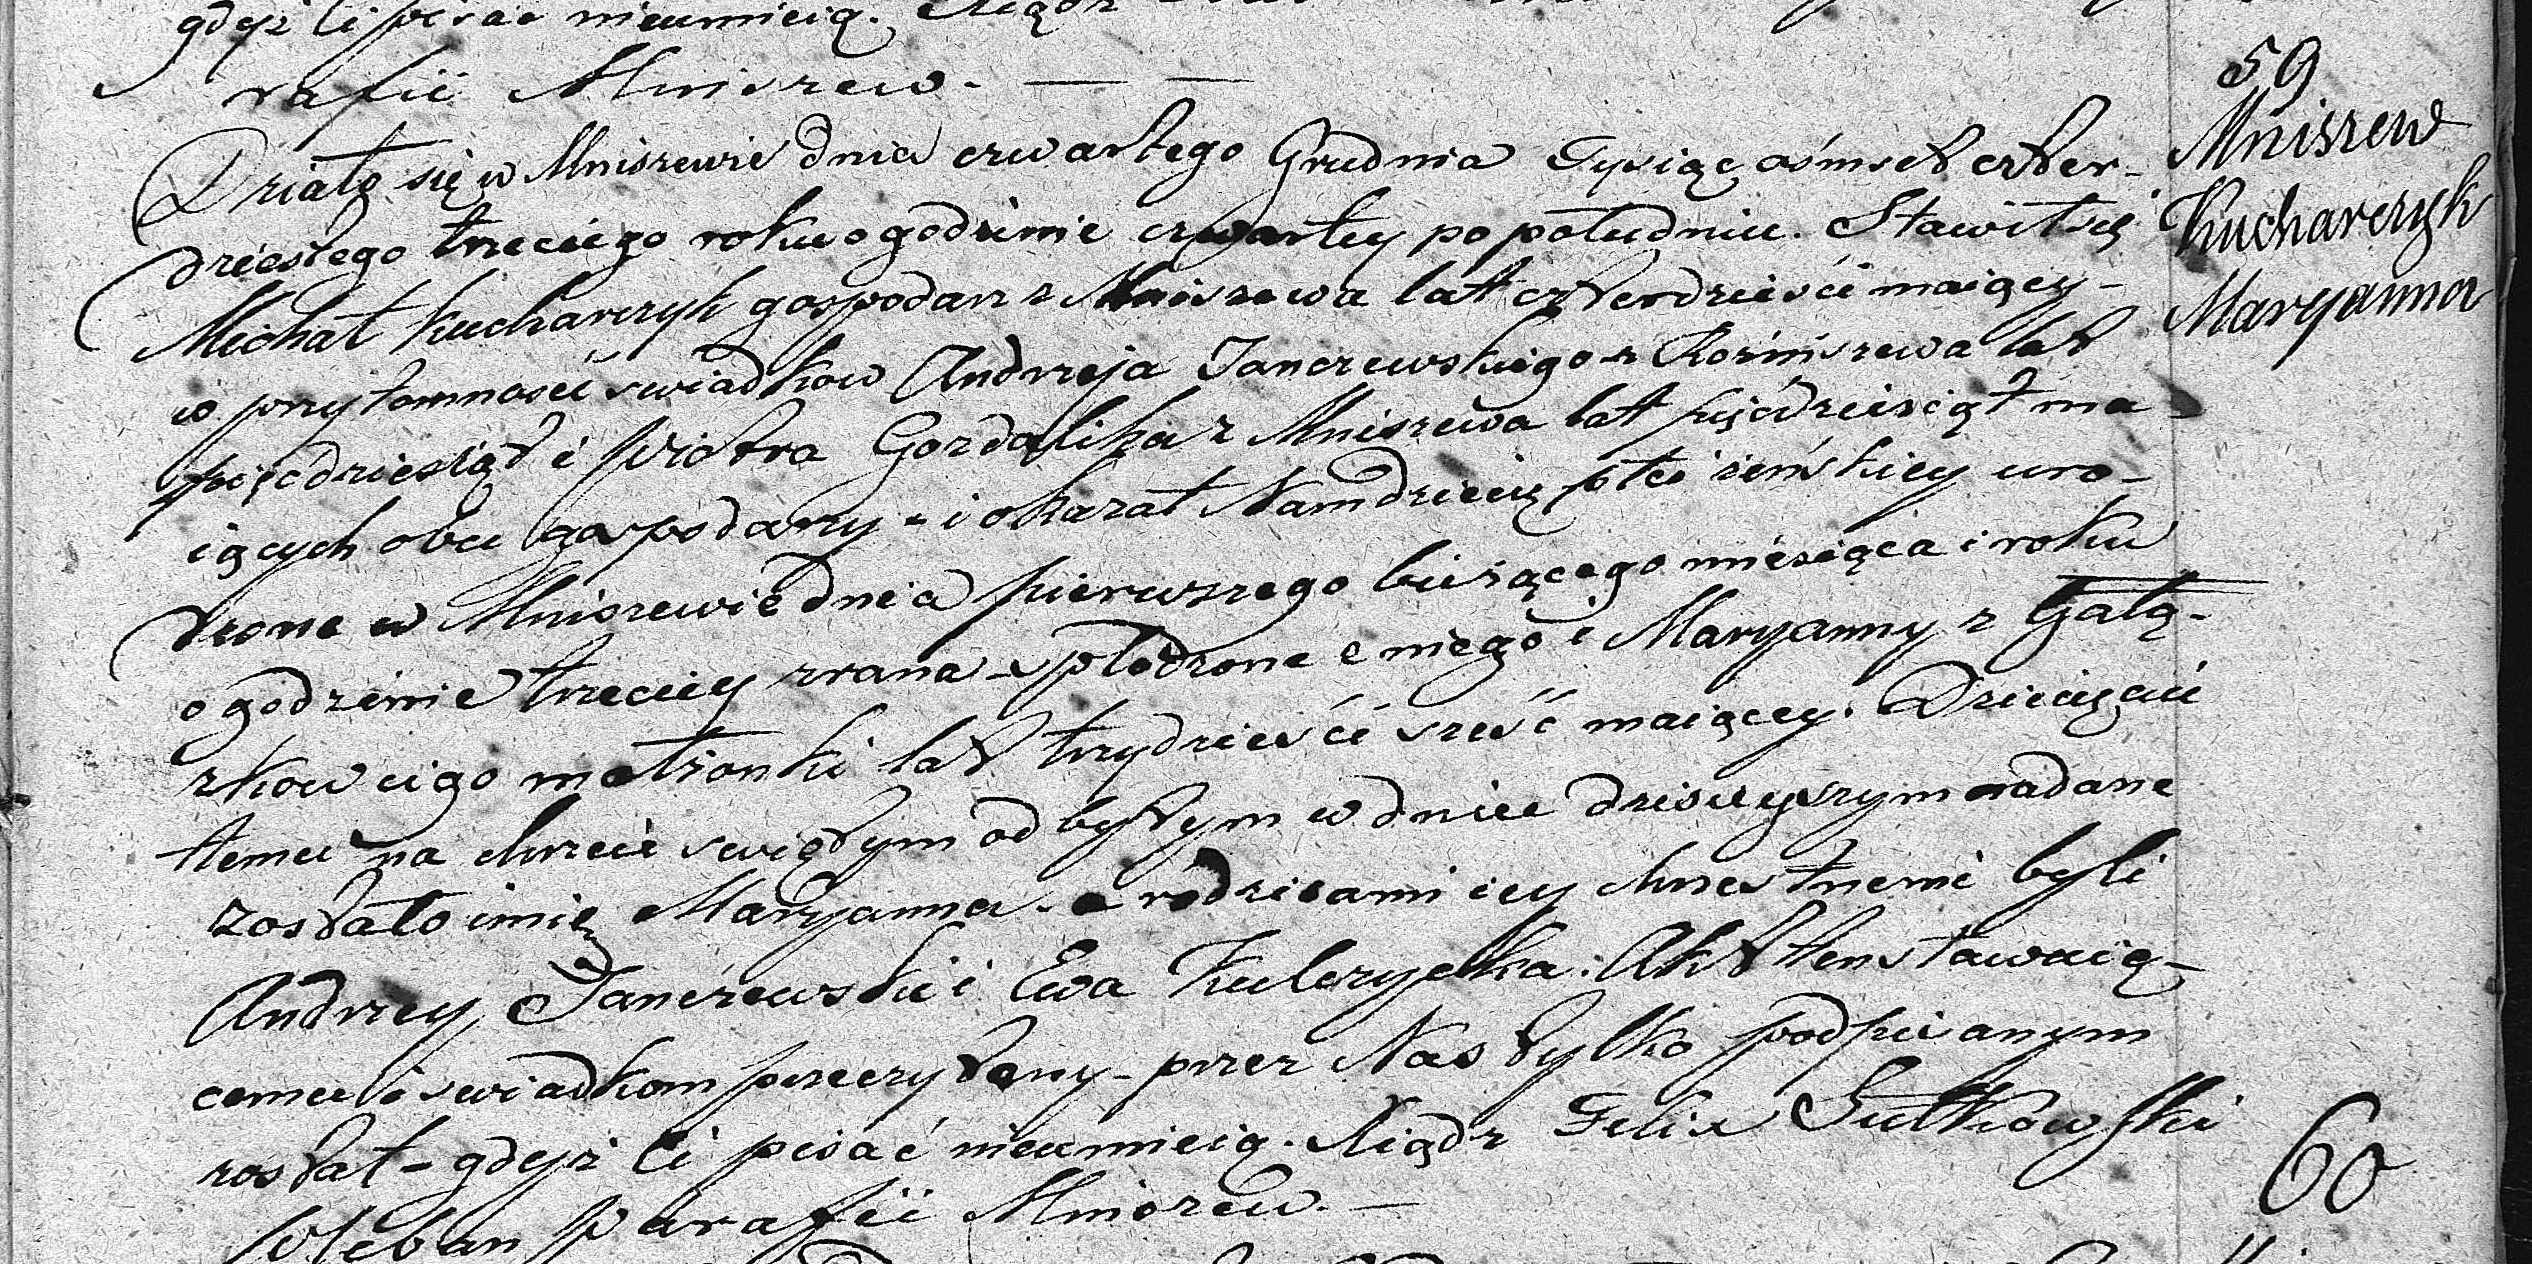 gdyż ci pisać nieumieią. Xiądz
rafii Mniszew. — —
59
Mniszew
Kucharczyk
Maryanna
Działo się w Mniszewie dnia czwartego Grudnia Tysiąc ośmset czter-
dziestego trzeciego roku o godzinie czwartey po południu. Stawił się
Michał Kucharczyk gospodarz z Mniszewa lat czterdzieści maiący-
w przytomności swiadkow Andrzeja Janczewskiego z Rozniszewa lat
pięćdziesiąt i Piotra Gozdalika z Mniszewa lat pięćdziesiąt ma-
iących obu gospodarzy - i okazał Nam dziecię płci żeńskiey uro-
dzone w Mniszewie dnia pierwszego bieżącego miesiąca i roku
o godzinie trzeciey zrana - spłodzone z niego i Maryanny z Gałą-
zkow iego małżonki lat trzydzieści sześć maiącey. Dziecięciu
temu na chrzcie swiętym odbytym w dniu dzisieyszym nadane
zostało imię Maryanna - a rodzicami iey chrzestnemi byli
Andrzey Janczewski i Ewa Kulczycka. Akt ten stawaią-
cemu i swiadkom przeczytany - przez Nas tylko podpisanym
został - gdyż ci pisać nieumieią. Xiądz Felix Sułkowski
Pleban Parafii Mniszew. —
60